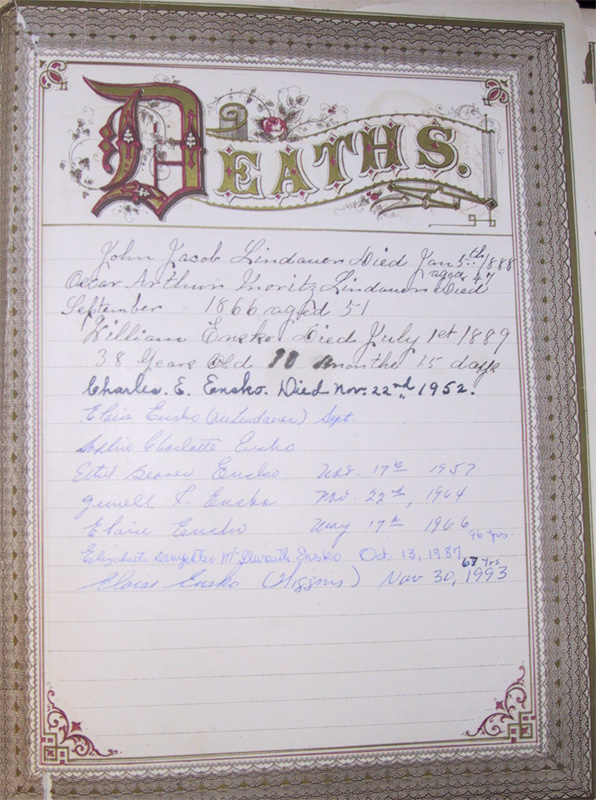 DEATHS.
John Jacob Lindauer Died Jan 5th 1888
aged
Oscar Arthur Moritz Lindauer Died
September 1866 aged 51
William Ensko Died July 1st 1889
38 Years Old 10 months 15 days
Charles. E. Ensko. Died Nov. 22nd, 1952.
Ensko (nee Lindauer) Sept.
Sophie Charlotte Ensko
Ethel Ensko Nov. 17th 1957
Ensko Nov. 22nd, 1964
Elsie Ensko May 17th 1966
96 Yrs
Elizabeth Ensko Oct. 13, 1987
67 Yrs
Eloise Ensko (Higgons) Nov 30, 1993